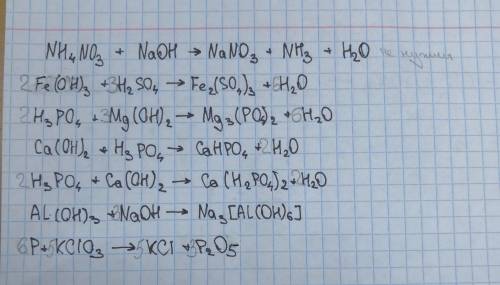 NH₄NO₃ + NaOH → NaNO₃ + NH₃ + H₂O не нужны
2Fe(OH)₃ + 3H₂SO₄ → Fe₂(SO₄)₃ + 6H₂O
2H₃PO₄ + 3Mg(OH)₂ → Mg₃(PO₄)₂ + 6H₂O
Ca(OH)₂ + H₃PO₄ → CaHPO₄ + 2H₂O
2H₃PO₄ + Ca(OH)₂ → Ca(H₂PO₄)₂ + 2H₂O
AL(OH)₃ + 3NaOH → Na₃[Al(OH)₆]
6P + 5KClO₃ → 5KCl + 3P₂O₅